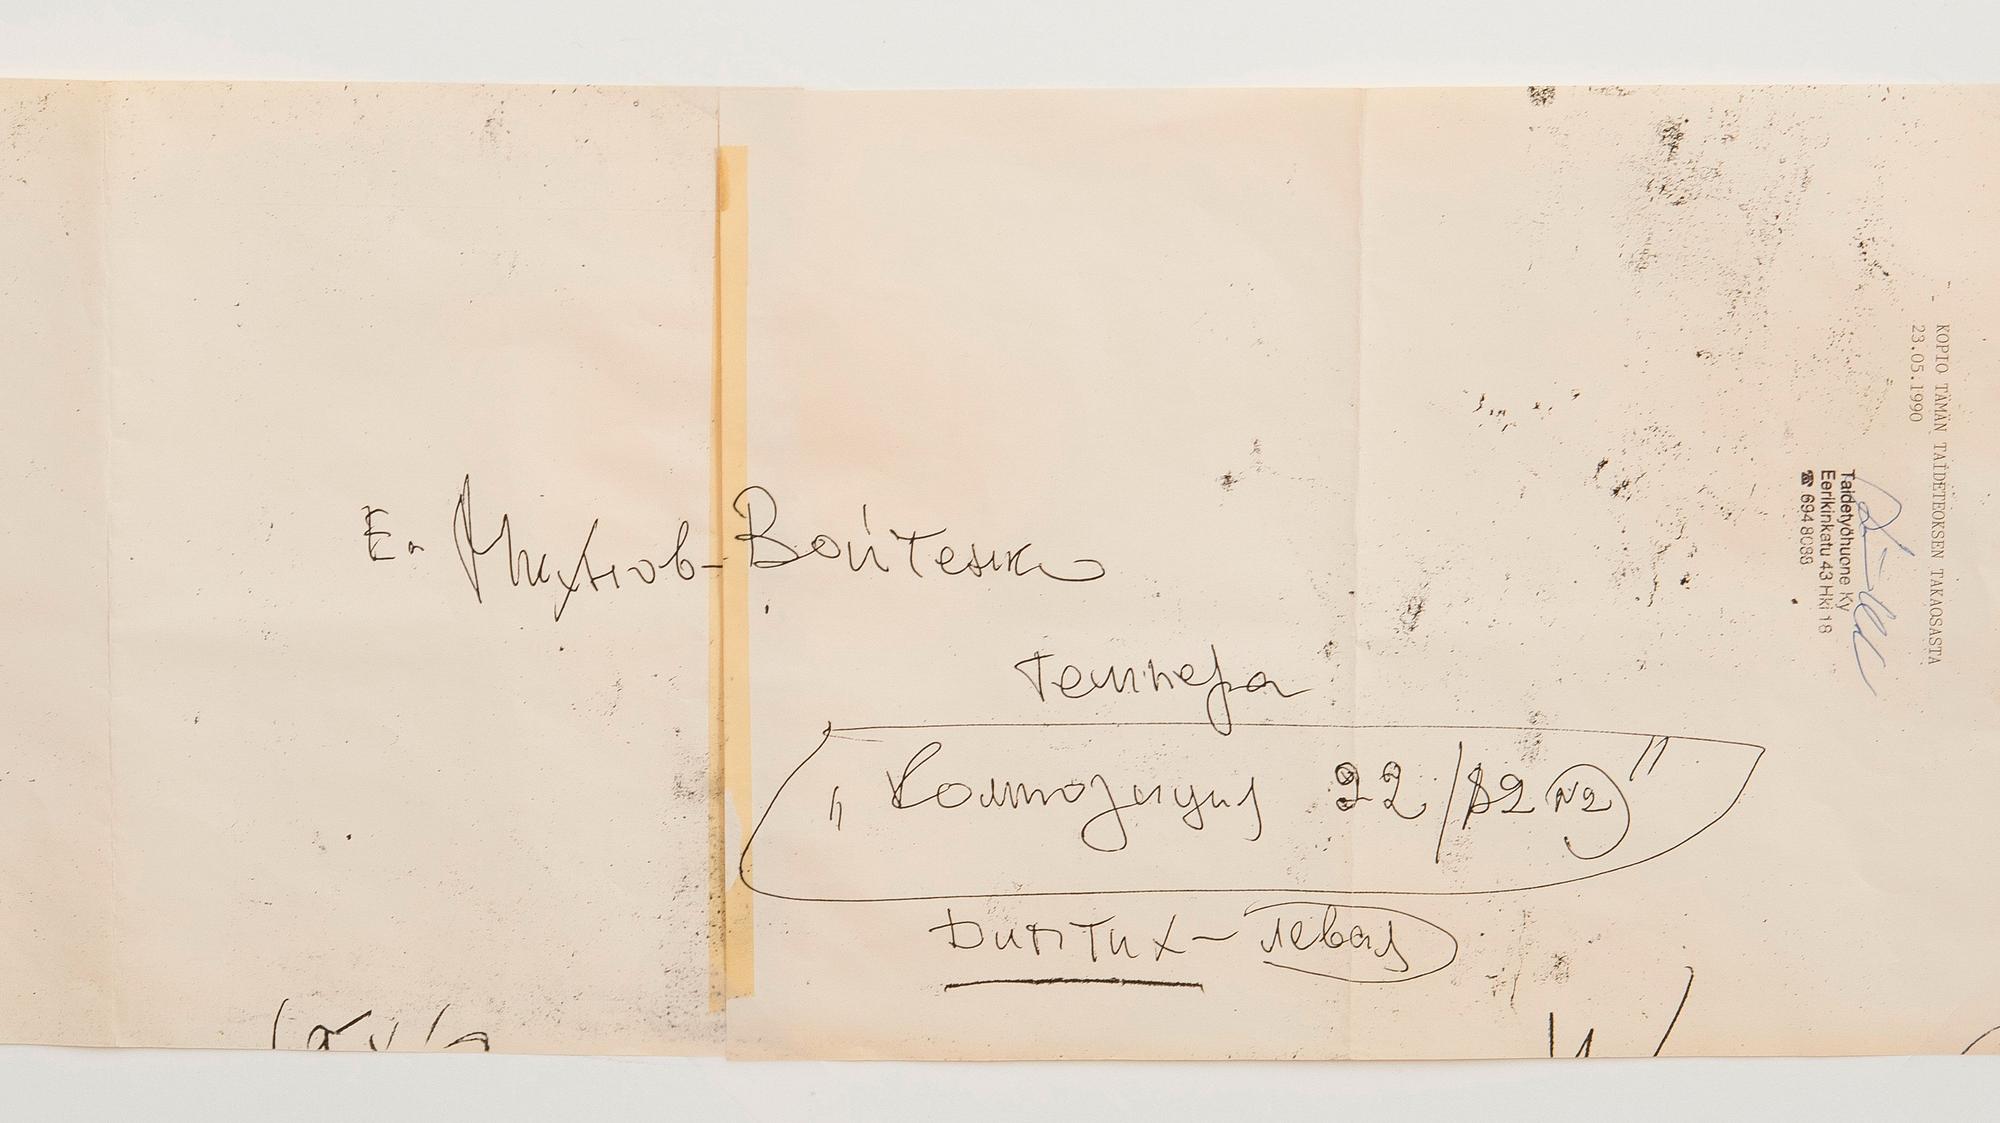 Е. Михнов-Войтенко
темпера
„Композиция 22/82 №2"
Диптих-левая
KOPIO TÄMÄN TAIDETEOKSEN TAKAOSASTA
23.05.1990
Taidetyöhuone Ky
Eerikinkatu 43 Hki 18
☎ 694 8088